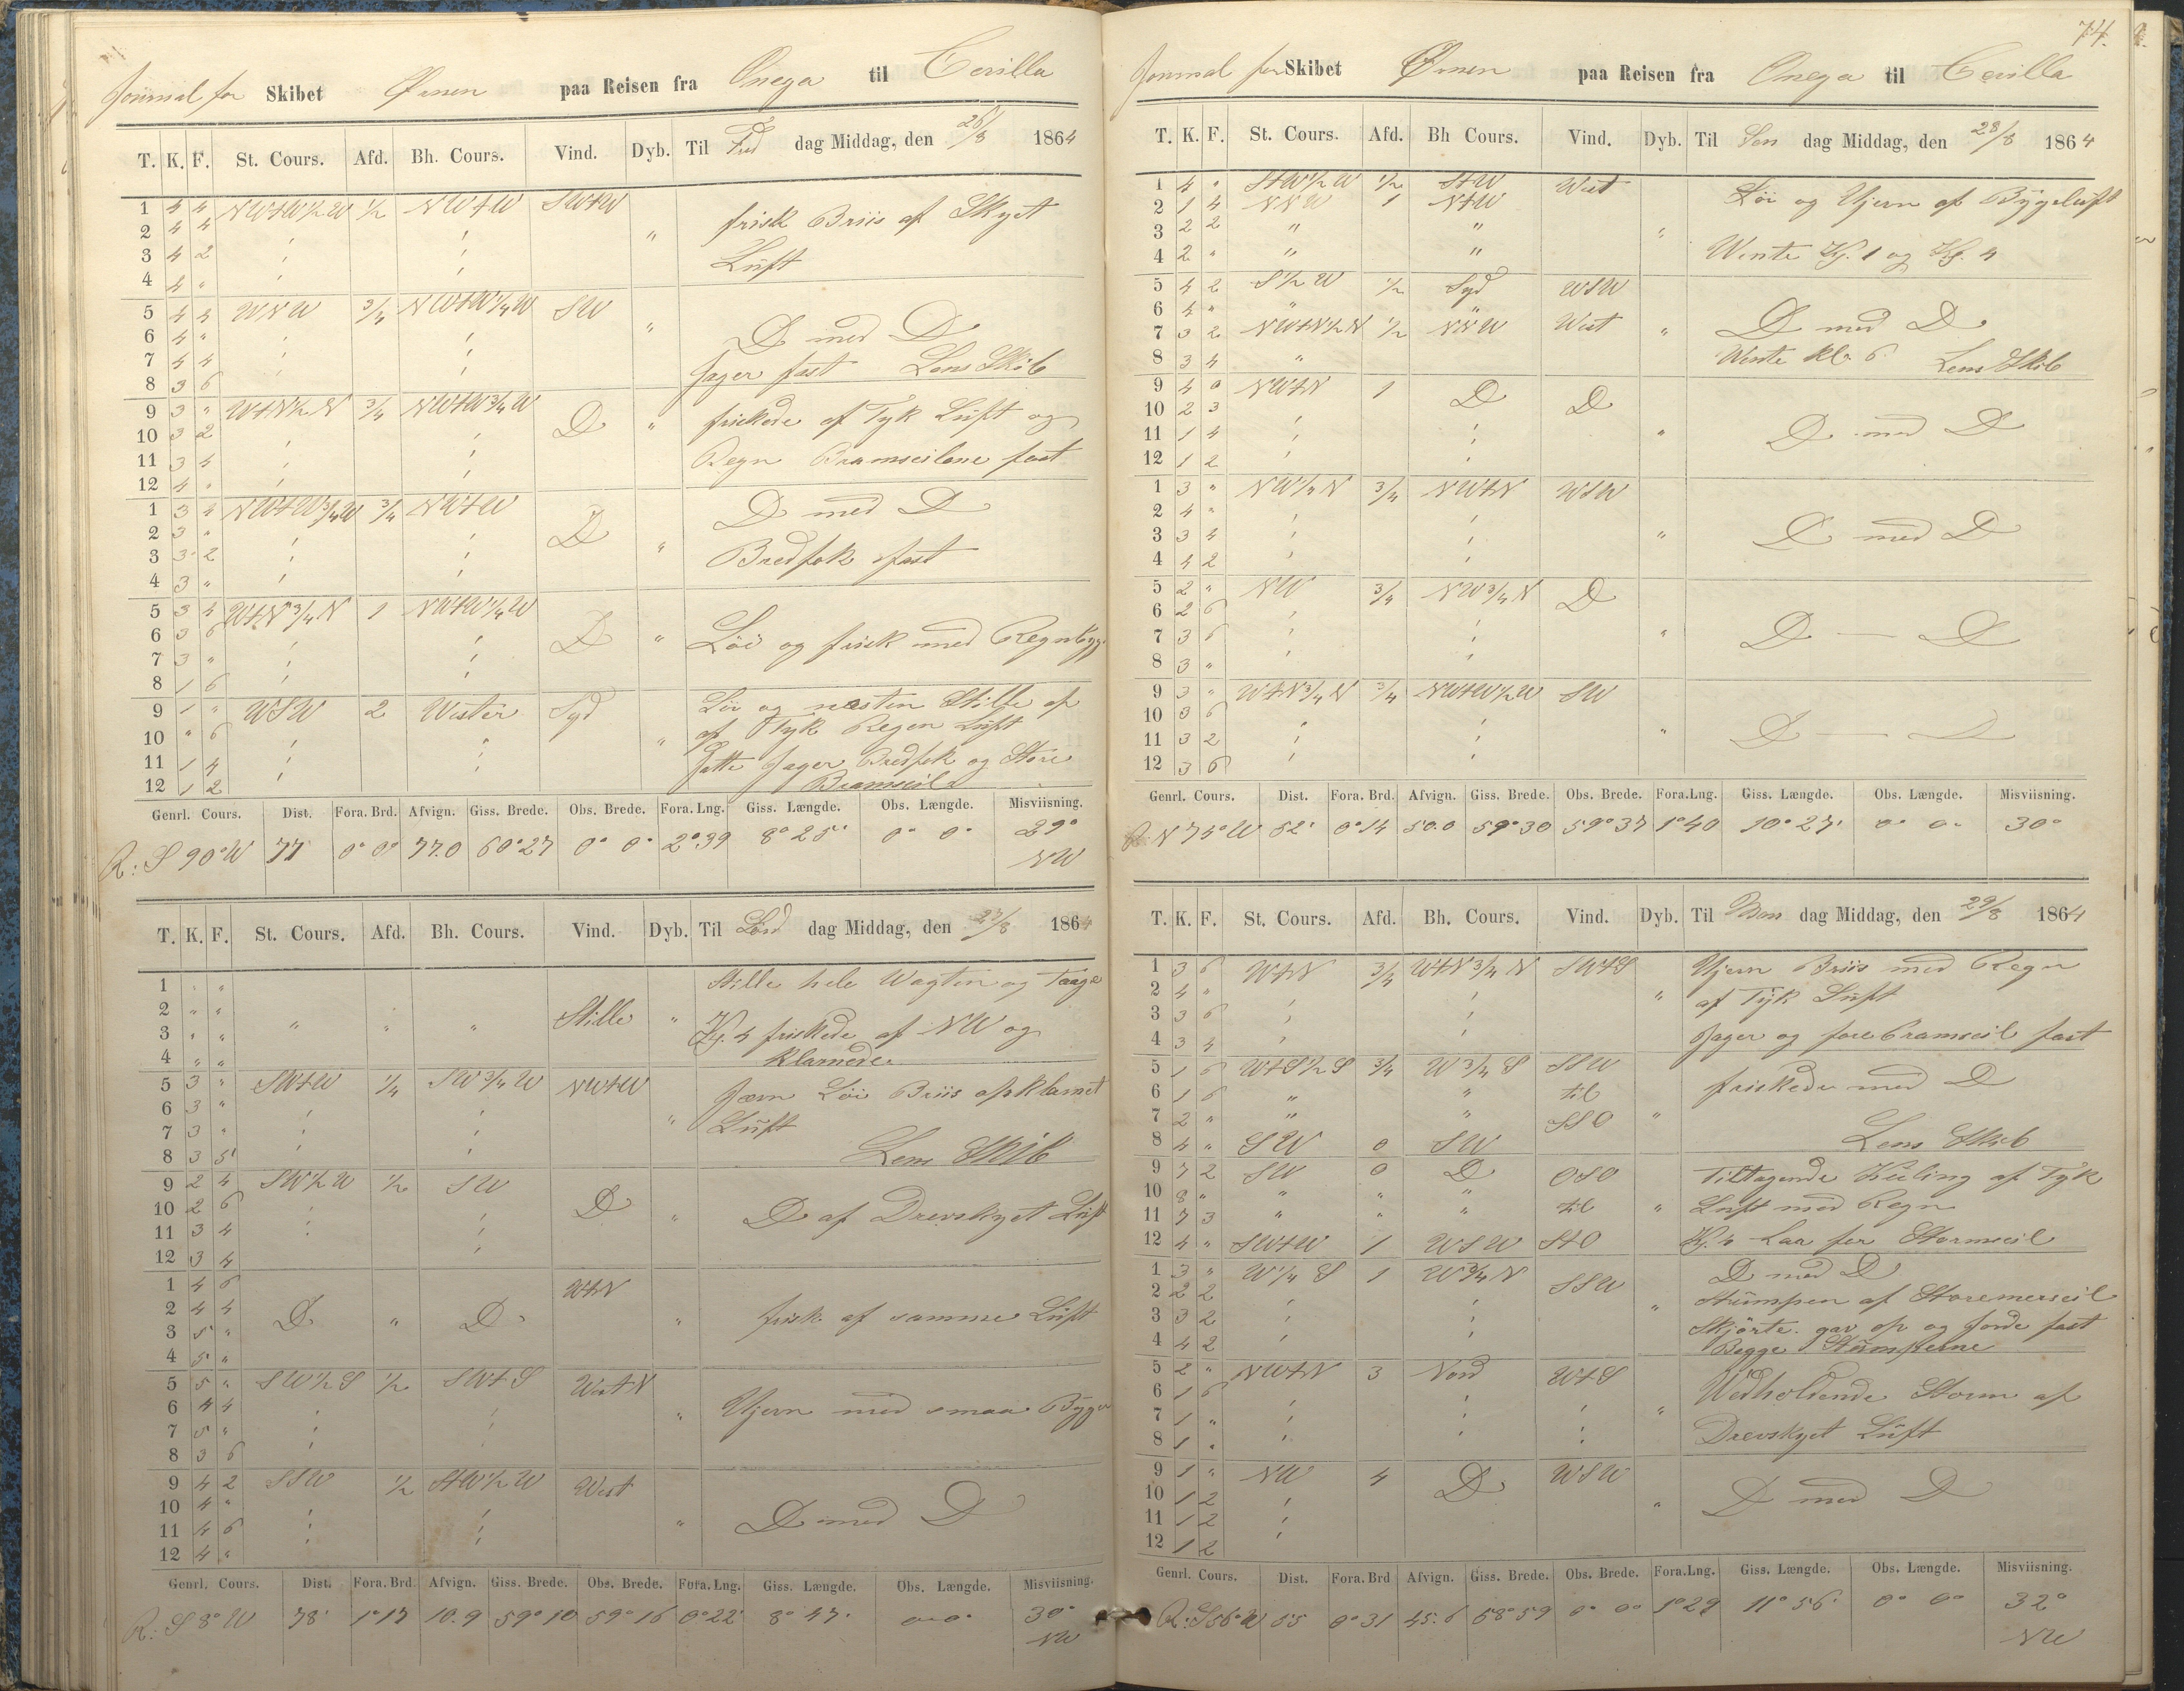 Journal for Skibet Ørnen paa Reisen fra Onega til Cerilla
T. K. F. St. Cours. Afd. Bh. Cours. Vind. Dyb. Til Fre dag Middag, den 26/8 1864
1 4 4 NWtW½W ½ NWtW SWtW
2 4 4 " frisk Briis af Skyet
3 4 2 Luft
4 4 "
5 4 4 WNW ¾ NWtW¼W SW "
6 4 " D med D
7 4 4 Jager fast Lens Skib
8 3 6
9 3 " WtN½N ¾ NWtW¾W D " friskede af Tyk Luft og
10 3 2
11 3 4 Regn Bramseilene fast
12 4 "
1 3 4 NWtW¾W ¾ NWtW D D med D
2 3 "
3 3 2 " Bredfok fast
4 3 "
5 3 4 WtN¾N 1 NWtW¼W
6 3 6 D " Löi og frisk med Regnbyg
7 3 "
8 1 6
9 1 " WSW 2 Wester Syd Löi og næsten Stille af
10 " 6 " af Tyk Regen Luft
11 1 4 Satte Jager Bredfok og Store
12 1 2 Bramseil
Genrl. Cours. Dist. Fora. Brd. Afvign. Giss. Brede. Obs. Brede. Fora. Lng. Giss. Længde. Obs. Længde. Misviisning.
R: S 90° W 77 0° 0° 77.0 60°27 0° 0° 2°39 8° 25' 0° 0° 29°
NW
T. K. F. St. Cours. Afd. Bh. Cours. Vind. Dyb. Til Lör dag Middag, den 27/8 1864
1 " " Stille hele Wagten og Taage
2 " " " " " Stille "
3 " " Kl. 4 friskede af NW og
4 " " klarnede.
5 3 " SWtW ¼ SW¾W NWtW Jævn Löi Briis opklarnet
6 3 " "
7 3 " Luft
8 3 5 Lens Skib
9 2 4 SW½W ½ SW
10 2 6 D " D af Drevskyet Luft
11 3 4
12 3 4
1 4 6 WtN
2 4 4 D " D " frisk af samme Luft
3 5 "
4 5 "
5 5 " SW½S ½ SWtS WestN
6 4 4 " Ujevn med smaa Byger
7 5 "
8 3 6
9 4 2 SSW ½ StW½W West
10 4 " D med D
11 4 6 "
12 4 "
Genrl. Cours. Dist. Fora. Brd Afvign. Giss. Brede. Obs. Brede. Fora. Lng. Giss. Længde. Obs. Længde. Misviisning.
R: S 8° W 78' 1°17 10.9 59° 10 59° 16 0°22' 8° 47' 0° 0° 30°
NW
74.
Journal for Skibet Ørnen paa Reisen fra Onega til Cerilla
T. K. F. St. Cours. Afd. Bh Cours. Vind. Dyb. Til Søn dag Middag, den 28/8 1864
1 4 " StW½W ½ StW West Löi og Ujevn af Bygeluft
2 1 4 NNW 1 NtW
3 2 2 " " "
4 2 " " " Wente Kl. 1 og Kl. 4
5 4 2 S½W ½ Syd WSW
6 4 " " "
7 3 2 NWtN½N ½ NNW West " D med D
8 3 4 " Wente kl. 6. Lens Skib
9 4 0 NWtN 1 D D
10 2 3
11 1 4 " D med D
12 1 2
1 3 " NW½N ¾ NWtN WSW
2 4 "
3 3 4 " D med D
4 4 2
5 2 " NW ¾ NW¾N D
6 2 6
7 3 6 " D — D
8 3 "
9 3 " WtN¾N ¾ NWtW½W SW
10 3 6
11 3 2 " D — D
12 3 6
Genrl. Cours. Dist. Fora. Brd. Afvign. Giss. Brede. Obs. Brede. Fora. Lng. Giss. Længde. Obs. Længde. Misviisning.
R: N 74° W 52' 0°14 50.0 59°30 59°37 1°40 10° 27' 0° 0° 30°
T. K. F. St. Cours. Afd. Bh. Cours. Vind. Dyb. Til Man dag Middag, den 29/8 1864
1 3 6 WtN ¾ WtN¾N SWtS Ujevn Briis med Regn
2 4 " " af Tyk Luft
3 3 6
4 3 4 Jager og fore bramseil fast
5 1 6 WtS½S ¾ W¾S SSW friskede med D
6 1 6 " " til
7 2 " " " SSO "
8 4 " SW 0 SW Lens Skib
9 7 2 SW 0 D OSO Tiltagende Kuling af Tyk
10 8 " " " " til " Luft med Regn
11 7 3 " " "
12 4 " SWtW 1 WSW StO Kl. 4 Laa for Stormseil
1 3 " W¼S 1 W¾N SSW D med D
2 2 2 " Stumpen af Storemerseil
3 3 2 Skjörte. gav op og gjorde fast
4 4 2 Begge Stumperne
5 2 " NWtN 3 Nord WtS
6 1 6 " Wedholdende Storm af
7 1 "
8 1 " Drevskyet Luft
9 1 " NW 4 D WSW
10 1 2 " D med D
11 1 2
12 1 2
Genrl. Cours. Dist. Fora. Brd Afvign. Giss. Brede. Obs. Brede. Fora. Lng. Giss. Længde. Obs. Længde. Misviisning.
R: S56°W 55 0°31 45.6 58°59 0° 0° 1°29 11° 56' 0° 0° 32°
NW